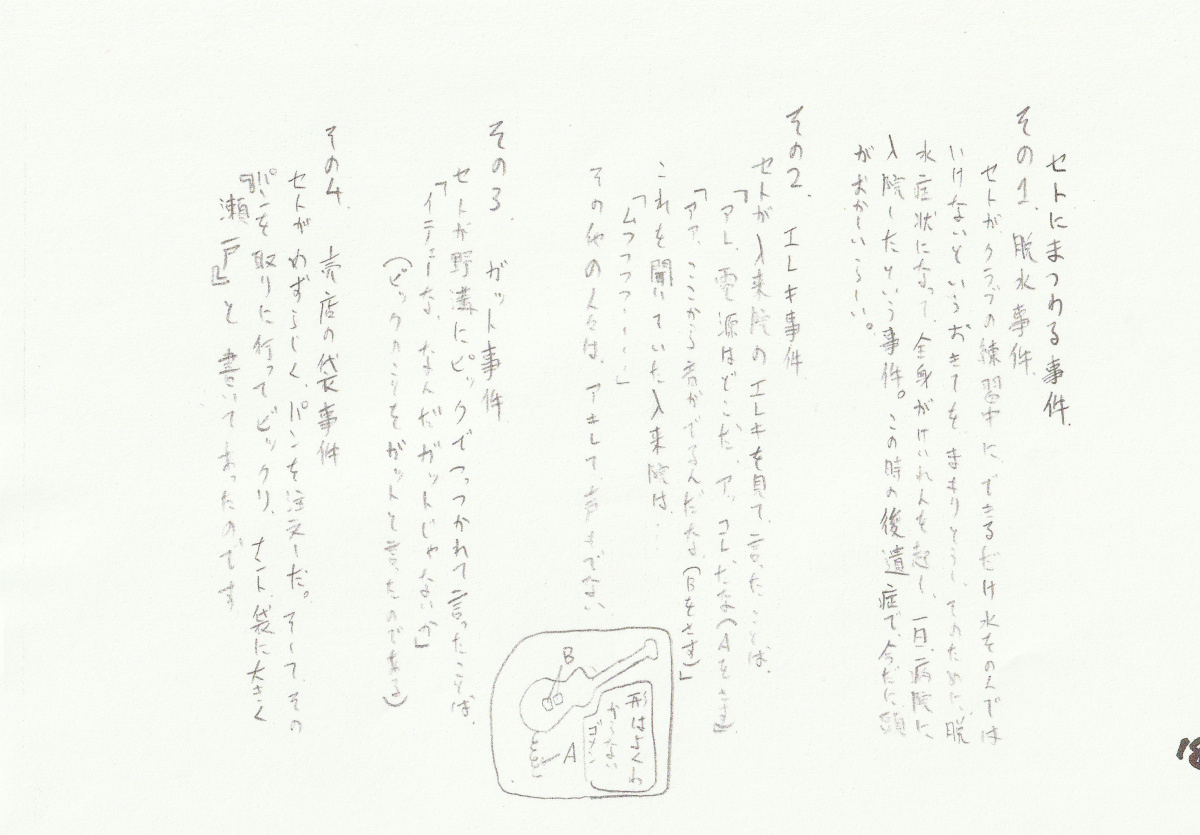 セトにまつわる事件.
その1. 脱水事件.
セトがクラブの練習中に、できるだけ水をのんでは
いけないというおきてを、まもりとうし、そのために、脱
水症状になって、全身がけいれんを起し、一日、病院に
入院したという事件。この時の後遺症で、今だに頭
がおかしいらしい。
その2. エレキ事件
セトが入来院のエレキを見て、言ったことば.
「アレ、電源はどこだ、アッ コレだな(Aをさす)
「アア、ここから音がでるんだな、(Bをさす)」
これを聞いていた入来院は…
「ムフフフ・・・・」
その他の人々は、アキレて、声もでない
その3. ガット事件
セトが野溝にピックでつつかれて言ったことば.
「イテェーな、なんだガットじゃないか」
(ピックのことをガットと言ったのである)
その4. 売店の袋事件
セトがめずらしく、パンを注文した。そして、その
パンを取りに行ってビックリ、ナント、袋に大きく
『瀬戸』と 書いてあったのです
B
A
形はよくわ
からない
ゴメン
18